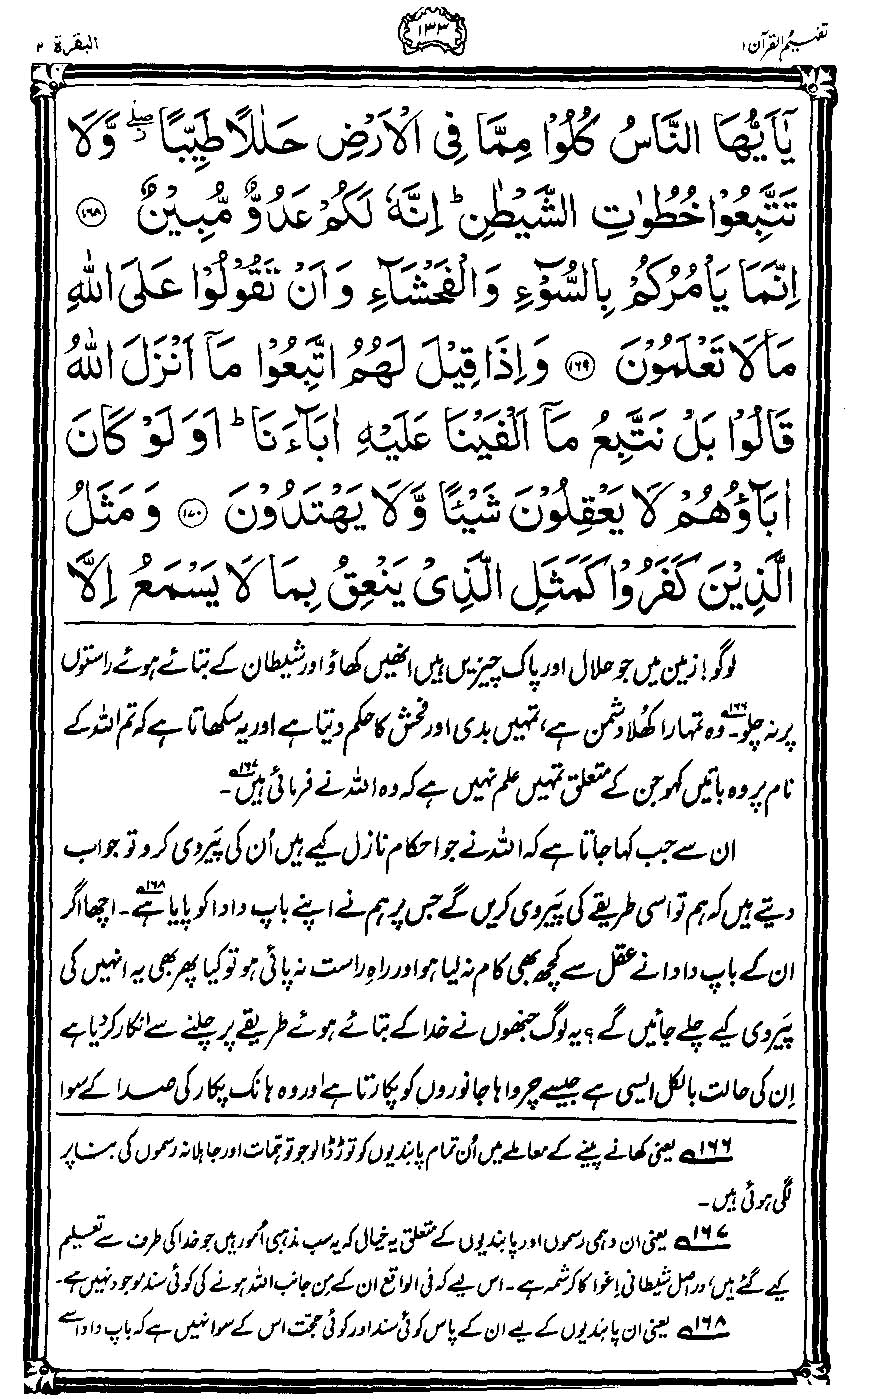 تفہیم القرآن ۱
۱۳۳
البقرۃ ۲
يٰۤاَيُّهَا النَّاسُ كُلُوْا مِمَّا فِى الْاَرْضِ حَلٰلًا طَيِّبًا ۖ وَّلَا
تَتَّبِعُوْا خُطُوٰتِ الشَّيْطٰنِ ؕ اِنَّهٗ لَكُمْ عَدُوٌّ مُّبِيْنٌ ﴿۱۶۸﴾
اِنَّمَا يَاْمُرُكُمْ بِالسُّوْٓءِ وَالْفَحْشَآءِ وَاَنْ تَقُوْلُوْا عَلَى اللّٰهِ
مَا لَا تَعْلَمُوْنَ ﴿۱۶۹﴾ وَاِذَا قِيْلَ لَهُمُ اتَّبِعُوْا مَآ اَنْزَلَ اللّٰهُ
قَالُوْا بَلْ نَتَّبِعُ مَآ اَلْفَيْنَا عَلَيْهِ اٰبَآءَنَا ؕ اَوَلَوْ كَانَ
اٰبَآؤُهُمْ لَا يَعْقِلُوْنَ شَيْئًا وَّلَا يَهْتَدُوْنَ ﴿۱۷۰﴾ وَمَثَلُ
الَّذِيْنَ كَفَرُوْا كَمَثَلِ الَّذِىْ يَنْعِقُ بِمَا لَا يَسْمَعُ اِلَّا
لوگو! زمین میں جو حلال اور پاک چیزیں ہیں انھیں کھاؤ اور شیطان کے بتائے ہوئے راستوں
پر نہ چلو۔۱۶۶ وہ تمہارا کھلا دشمن ہے، تمہیں بدی اور فحش کا حکم دیتا ہے اور یہ سکھاتا ہے کہ تم اللہ کے
نام پر وہ باتیں کہو جن کے متعلق تمہیں علم نہیں ہے کہ وہ اللہ نے فرمائی ہیں۱۶۷۔
ان سے جب کہا جاتا ہے کہ اللہ نے جو احکام نازل کیے ہیں اُن کی پیَروی کرو تو جواب
دیتے ہیں کہ ہم تو اسی طریقے کی پیَروی کریں گے جس پر ہم نے اپنے باپ دادا کو پایا ہے۱۶۸۔ اچھا اگر
ان کے باپ دادا نے عقل سے کچھ بھی کام نہ لیا ہو اور راہِ راست نہ پائی ہو تو کیا پھر بھی یہ انہیں کی
پیَروی کیے چلے جائیں گے؟ یہ لوگ جنھوں نے خدا کے بتائے ہوئے طریقے پر چلنے سے انکار کر دیا ہے
اِن کی حالت بالکل ایسی ہے جیسے چرواہا جانوروں کو پکارتا ہے اور وہ ہانک پکار کی صدا کے سوا
۱۶۶؎ یعنی کھانے پینے کے معاملے میں اُن تمام پابندیوں کو توڑ ڈالو جو توہمات اور جاہلانہ رسموں کی بنا پر
لگی ہوئی ہیں۔
۱۶۷؎ یعنی ان وہمی رسموں اور پابندیوں کے متعلق یہ خیال کہ یہ سب مذہبی اُمور ہیں جو خدا کی طرف سے تعلیم
کیے گئے ہیں، دراصل شیطانی اِغوا کا کرشمہ ہے۔ اس لیے کہ فی الواقع ان کے مِن جانب اللہ ہونے کی کوئی سند موجود نہیں ہے۔
۱۶۸؎ یعنی ان پابندیوں کے لیے ان کے پاس کوئی سند اور کوئی حجت اس کے سوا نہیں ہے کہ باپ دادا سے